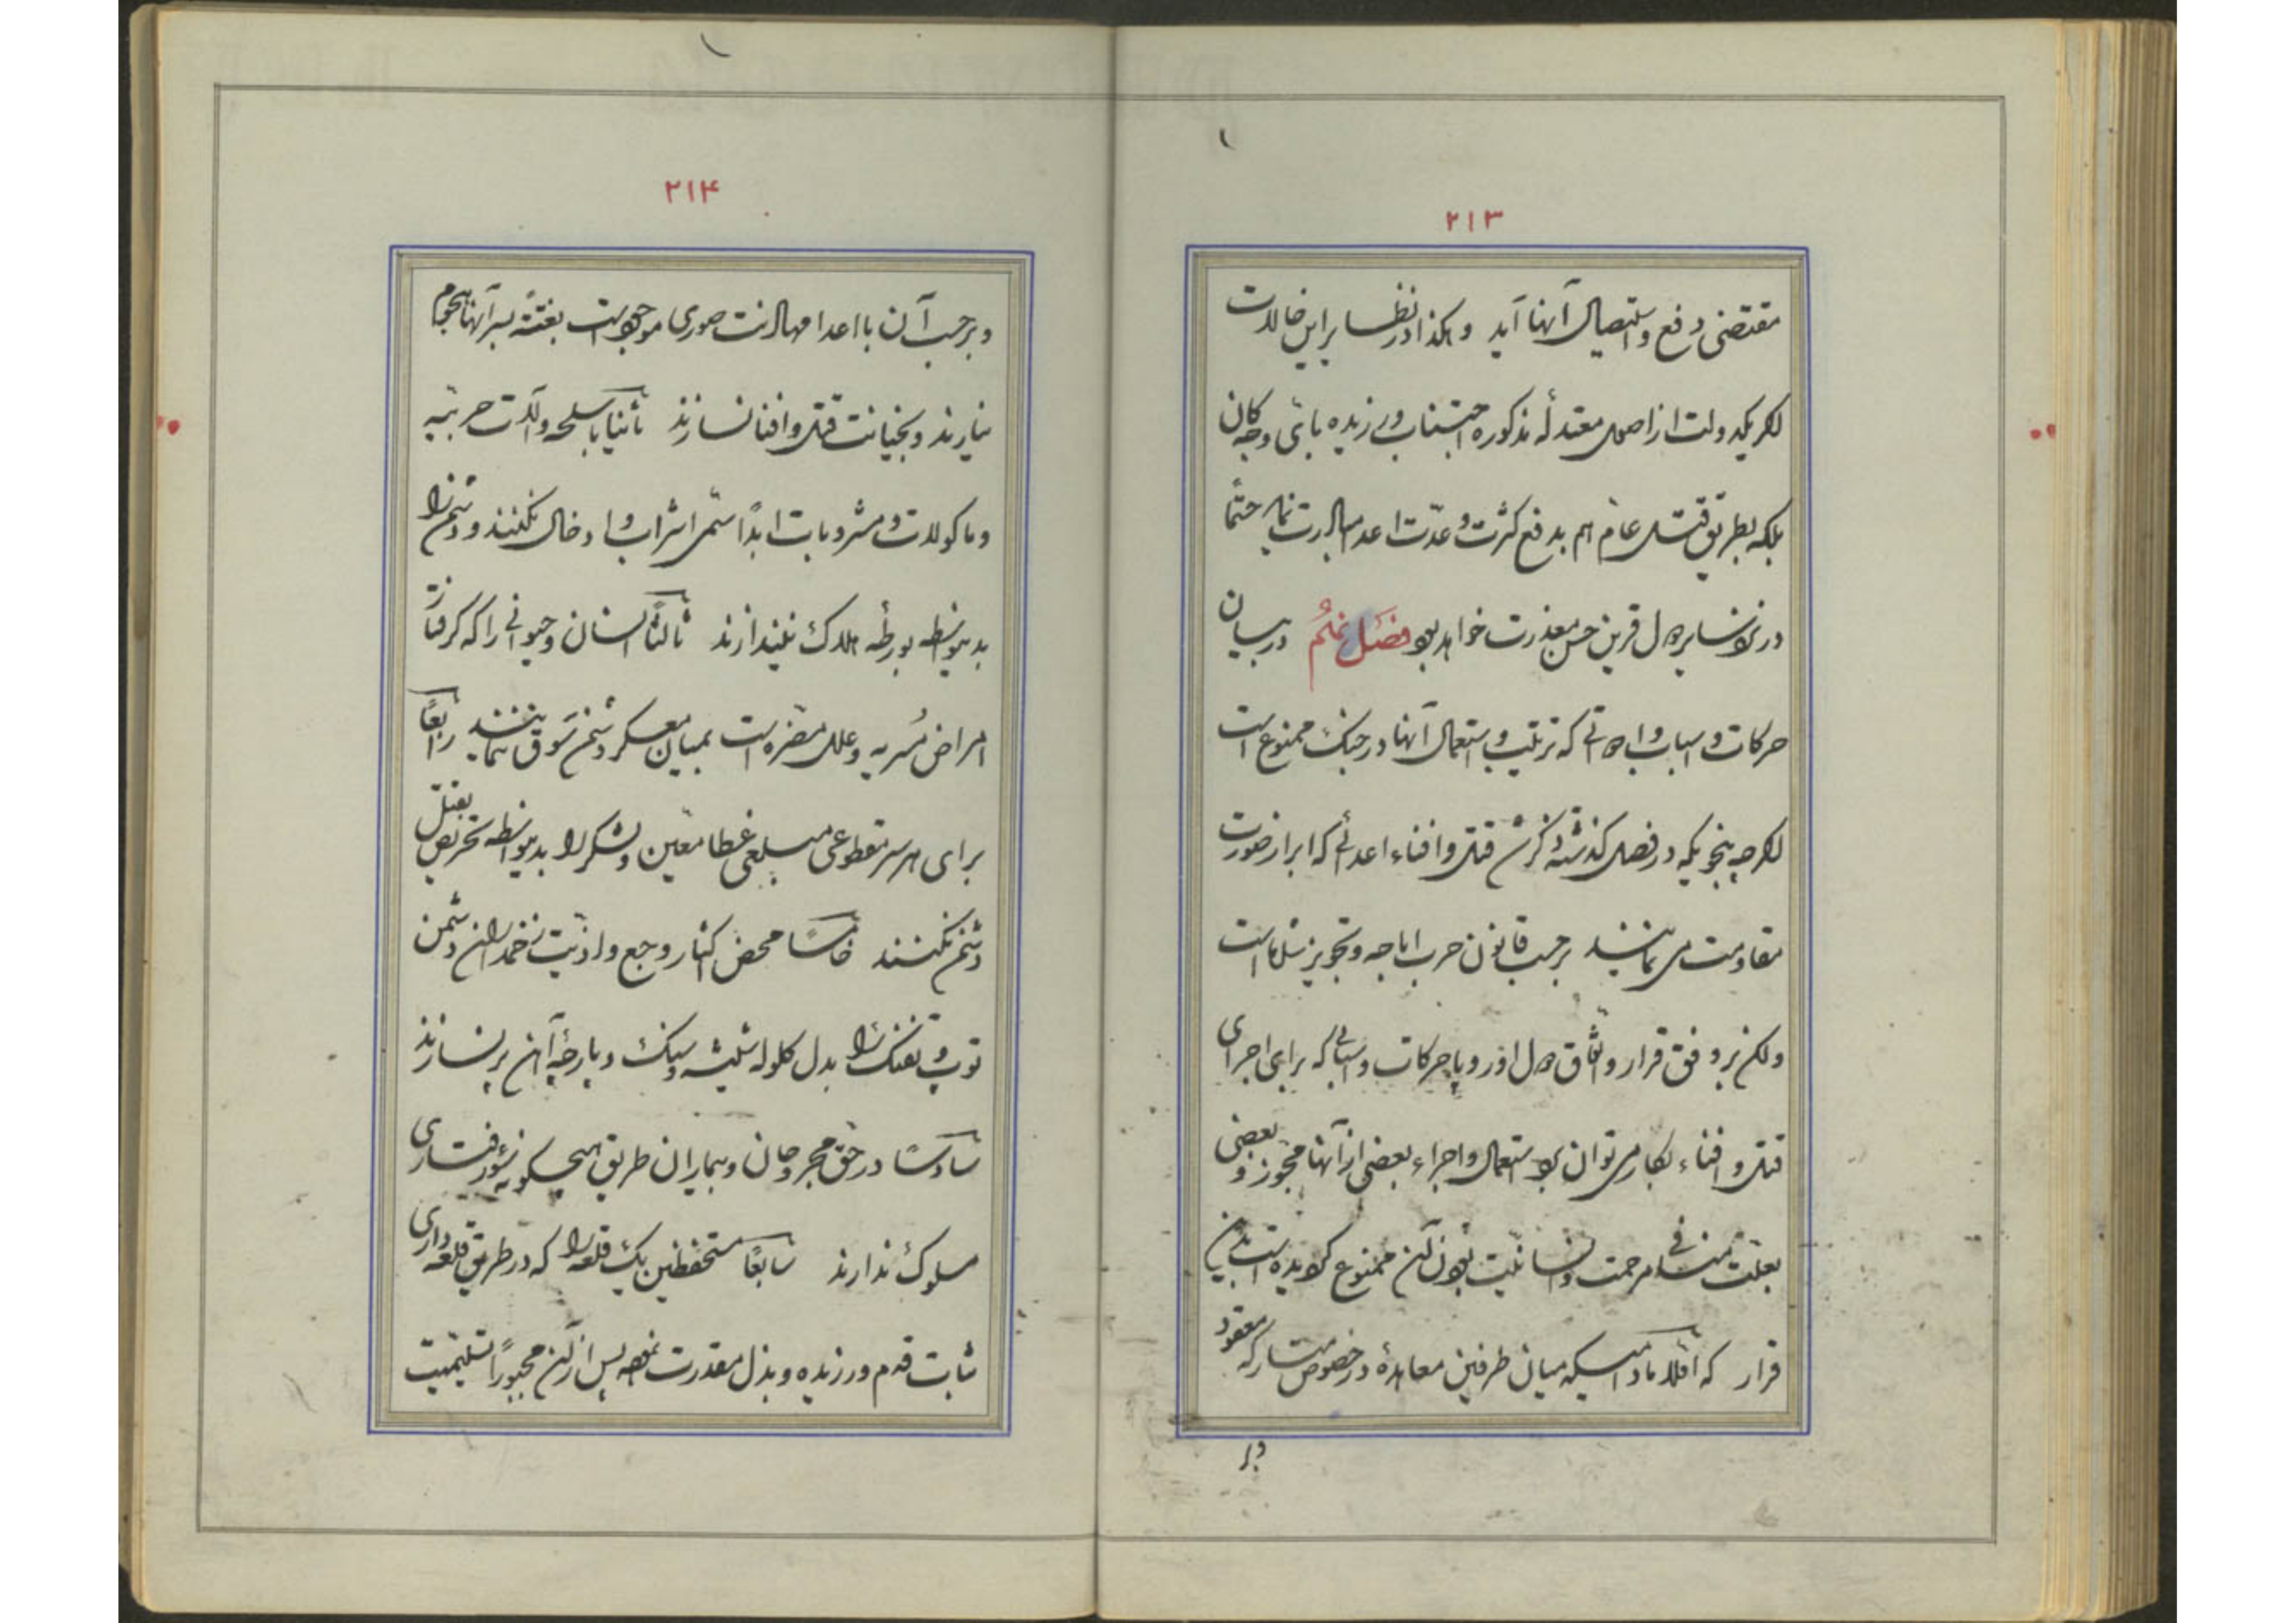 ۲۱۳
مقتضی دفع و استیصال آنها آید و هکذا در نظایر این حالات
اگر یکدولت از اصول معتدله مذکوره اجتناب ورزیده بای وجه کان
بلکه بطریق قتل عام هم بدفع کثرت و عدّت اعدا مبادرت نماید حتماً
در نزد سایر دول قرین حسن معذرت خواهد بود فصل نهم در بیان
حرکات و اسباب و ادواتی که ترتیب و استعمال آنها در جنک ممنوع است
اگرچه بنحویکه در فصل گذشته ذکر شد قتل و افناء اعدائی که ابراز صورت
مقاومت می نمایند برحسب قانون حرب اباحه و تجویز شده است
ولکن بر وفق قرار و اتّفاق دول اوروپا حرکات و اسبابی که برای اجرای
قتل و افناء بکار می توان برد استعمال و اجراء بعضی از آنها مجوّز و بعضی
بعلّت منافی مرحمت و انسانیّت بودن آن ممنوع گردیده است بدین
قرار که اوّلا مادامیکه میان طرفین معاهدهٔ در خصوص متارکه معقود
و بر
۲۱۴
و برحسب آن با اعدا مهادنت صوری موجود است بغتةً بسر آنها هجوم
نیارند و بخیانت قتل و افنا نسازند ثانیا باسلحه و آلات حربیّه
و ماکولات و مشروبات ابداً سمّ اشراب و ادخال نکنند و دشمن را
بدینواسطه بورطهٔ هلاک نیندازند ثالثاً انسان و حیوانی را که گرفتار
امراض مُسریه و علل مضرّه است بمیان معسکر دشمن سَوق ننمایند رابعاً
برای هر سر مقطوعی مبلغی عطا معیّن و لشکر را بدینواسطه تحریص بقتل
دشمن نکنند خامساً محض اکثار وجع و اذیّت زخمداران دشمن
توپ و تفنک را بدل کلوله شیشه و سنک و پارچهٔ آهن پر نسازند
سادساً در حق مجروحان و بیماران طریق هیچگونه سوءرفتاری
مسلوک ندارند سابعاً مستحفظین یک قلعه را که در طریق قلعه داری
ثابت قدم ورزیده و بذل مقدرت نموده پس از آن مجبوراً تسلیمیت